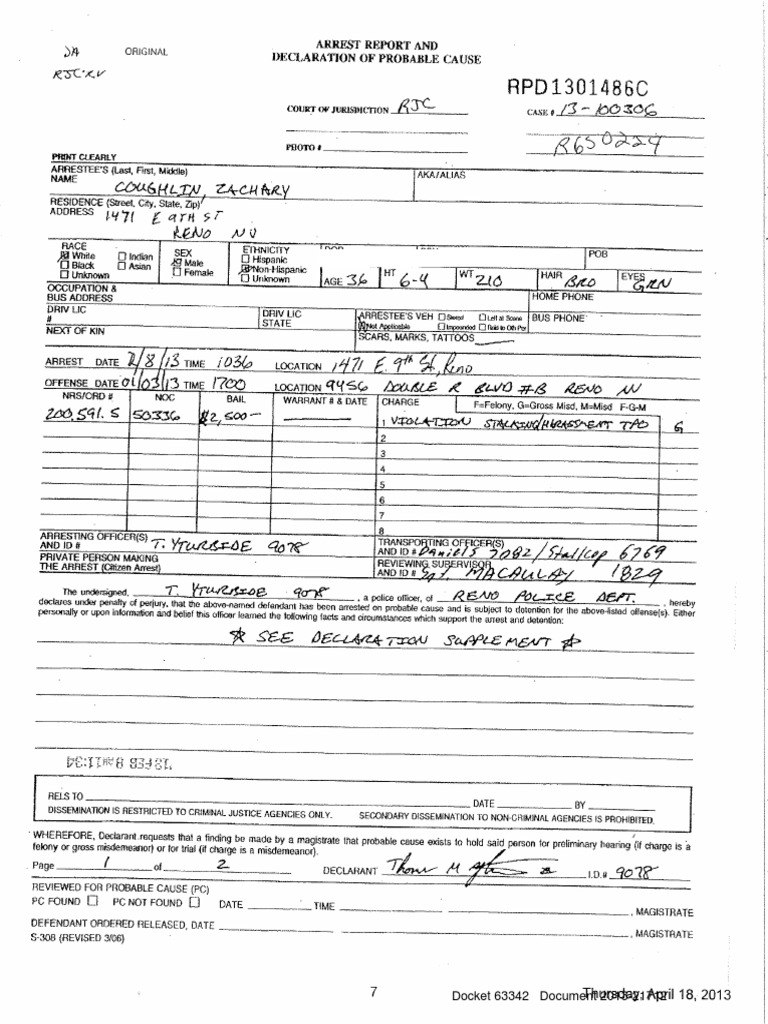 DA ORIGINAL
RJC-RV
ARREST REPORT AND
DECLARATION OF PROBABLE CAUSE
RPD1301486C
COURT OF JURISDICTION RJC CASE # 13-100306
R650224
PHOTO #
PRINT CLEARLY
ARRESTEE'S (Last, First, Middle)
NAME COUGHLIN, ZACHARY
AKA/ALIAS
RESIDENCE (Street, City, State, Zip)
ADDRESS 1471 E 9TH ST
RENO NV
RACE
White Indian
Black Asian
Unknown
SEX
Male
Female
ETHNICITY
Hispanic
Non-Hispanic
Unknown
POB
AGE 36 HT 6-4 WT 210 HAIR BRO EYES GRN
OCCUPATION &
BUS ADDRESS
HOME PHONE
DRIV LIC
#
DRIV LIC
STATE
ARRESTEE'S VEH Stored Left at Scene
Not Applicable Impounded Rlsd to Oth Per
BUS PHONE
NEXT OF KIN
SCARS, MARKS, TATTOOS
ARREST DATE 2/8/13 TIME 1036 LOCATION 1471 E. 9th St, Reno
OFFENSE DATE 01/03/13 TIME 1700 LOCATION 9456 DOUBLE R BLVD #B RENO NV
NRS/ORD # NOC BAIL WARRANT # & DATE CHARGE F=Felony, G=Gross Misd, M=Misd F-G-M
200.591.5 50336 $2,500- 1 VIOLATION STALKING/HARASSMENT TPO G
2
3
4
5
6
7
8
ARRESTING OFFICER(S)
AND ID # T. YTURBIDE 9078
TRANSPORTING OFFICER(S)
AND ID # Daniels 7082/Stallcop 6769
PRIVATE PERSON MAKING
THE ARREST (Citizen Arrest)
REVIEWING SUPERVISOR
AND ID # Sgt. MACAULAY 1829
The undersigned, T. YTURBIDE 9078, a police officer, of RENO POLICE DEPT., hereby
declares under penalty of perjury, that the above-named defendant has been arrested on probable cause and is subject to detention for the above-listed offense(s). Either
personally or upon information and belief this officer learned the following facts and circumstances which support the arrest and detention:
* SEE DECLARATION SUPPLEMENT *
RELS TO DATE BY
DISSEMINATION IS RESTRICTED TO CRIMINAL JUSTICE AGENCIES ONLY. SECONDARY DISSEMINATION TO NON-CRIMINAL AGENCIES IS PROHIBITED.
WHEREFORE, Declarant requests that a finding be made by a magistrate that probable cause exists to hold said person for preliminary hearing (if charge is a
felony or gross misdemeanor) or for trial (if charge is a misdemeanor).
Page 1 of 2 DECLARANT I.D.# 9078
REVIEWED FOR PROBABLE CAUSE (PC)
PC FOUND PC NOT FOUND DATE TIME , MAGISTRATE
DEFENDANT ORDERED RELEASED, DATE , MAGISTRATE
S-308 (REVISED 3/06)
7
Docket 63342 Document Thursday, April 18, 2013